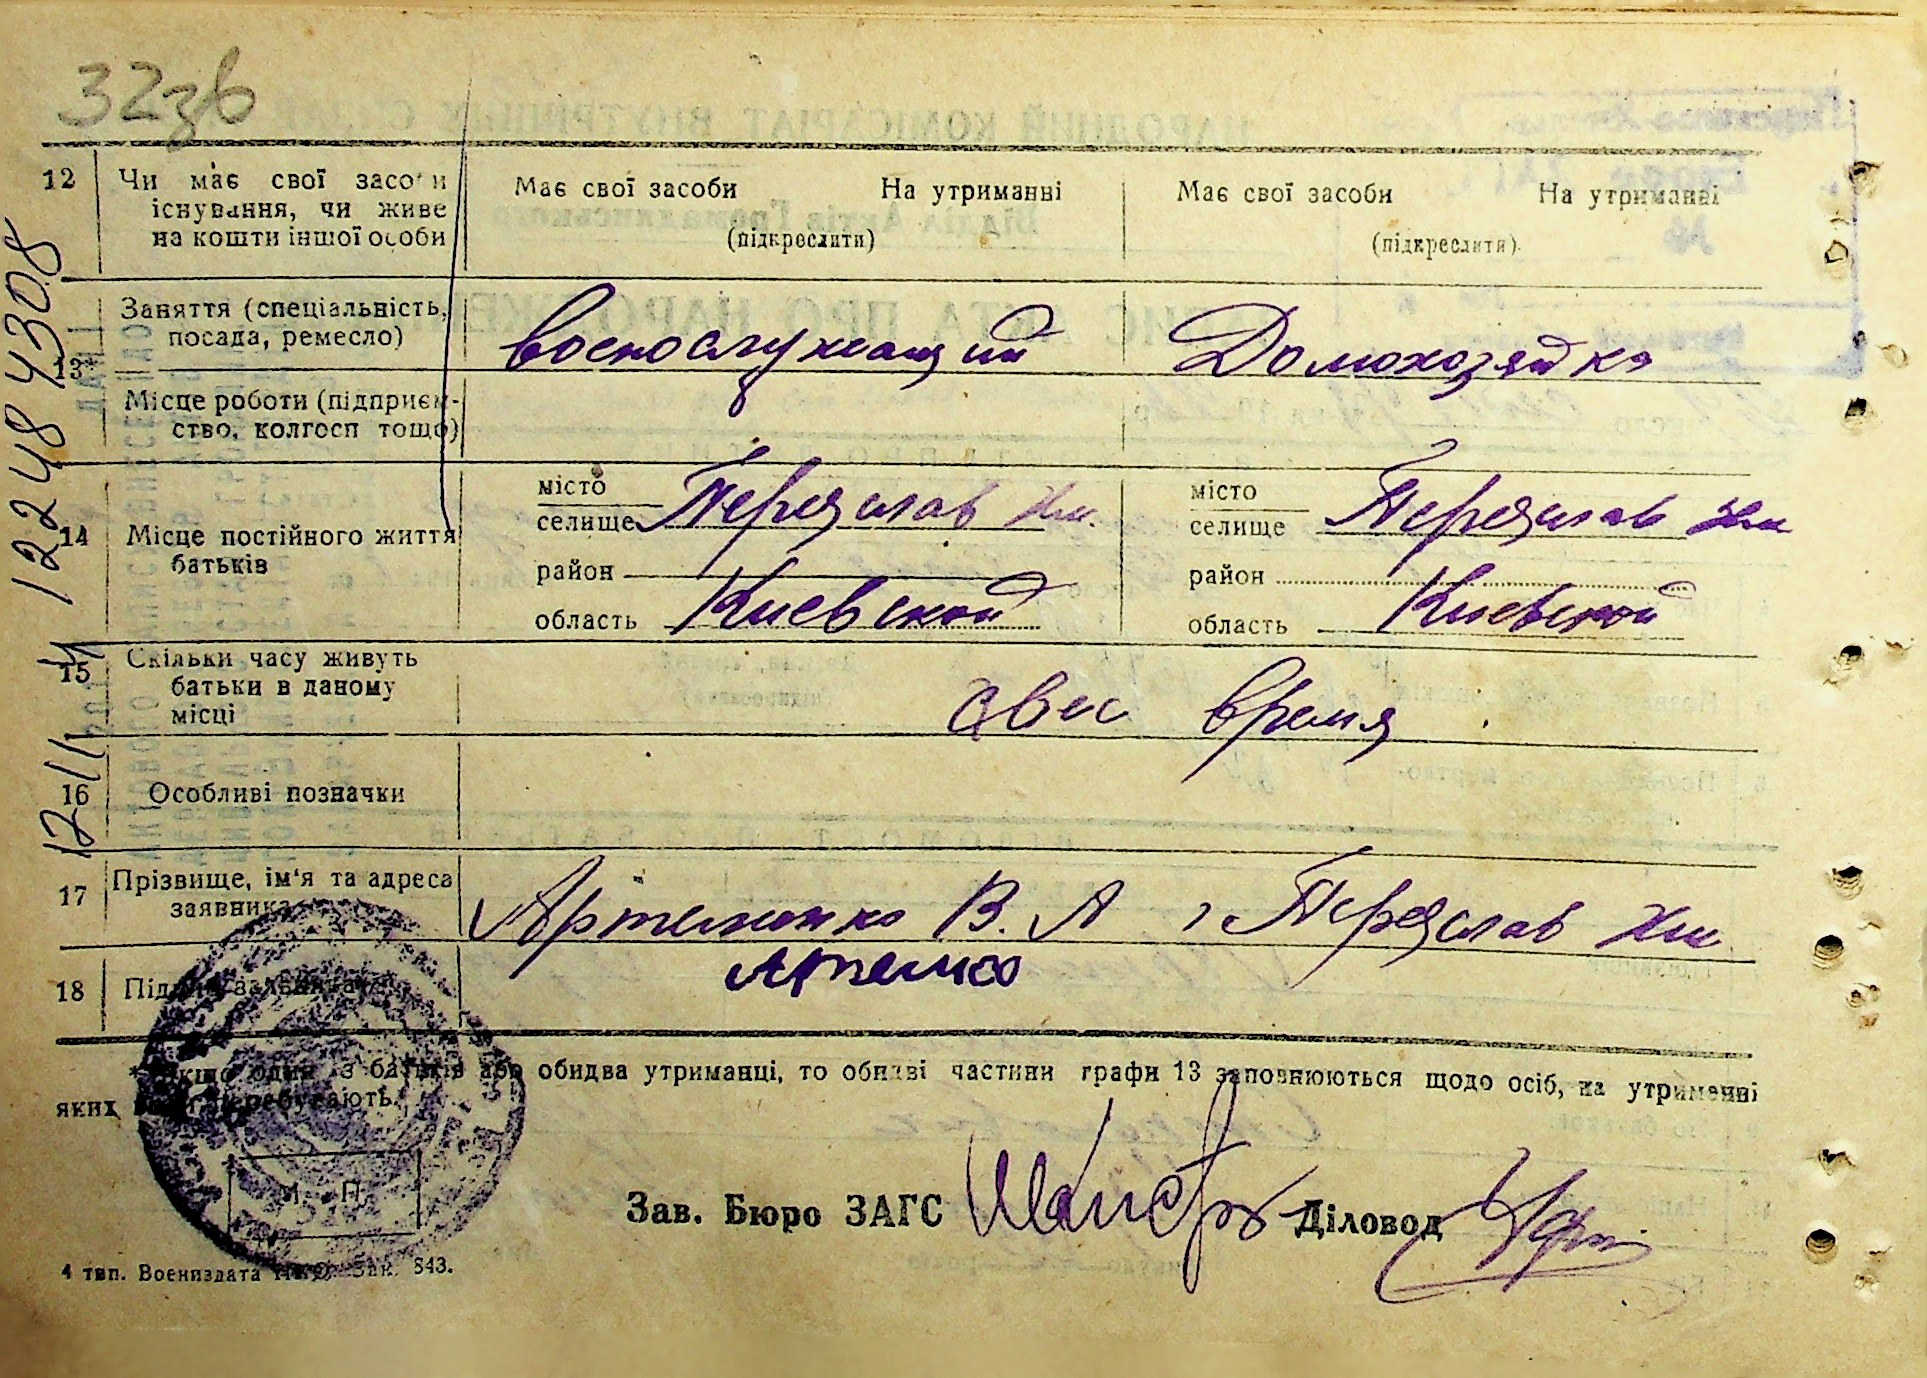 32зв
12 Чи має свої засоби Має свої засоби На утриманні Має свої засоби На утриманні
існування, чи живе
на кошти іншої особи (підкреслити) (підкреслити)
Заняття (спеціальність,
посада, ремесло) военослужащий Домохозяйка
13*
Місце роботи (підприєм-
ство, колгосп тощо)
місто місто
селище Переяслав Хм. селище Переяслав Хм
14 Місце постійного життя
батьків район район
область Киевской область Киевской
15 Скільки часу живуть
батьки в даному
місці свес время
16 Особливі позначки
17 Прізвище, ім'я та адреса
заявника Артеменко В. А г Переяслав Хм
18 Підпис заявника
* Якщо один з батьків або обидва утриманці, то обидві частини графи 13 заповнюються щодо осіб, на утриманні
яких вони перебувають.
М. П.
Зав. Бюро ЗАГС Діловод
4 тип. Воениздата НКО. Зак. 843.
12248 4308
12-11